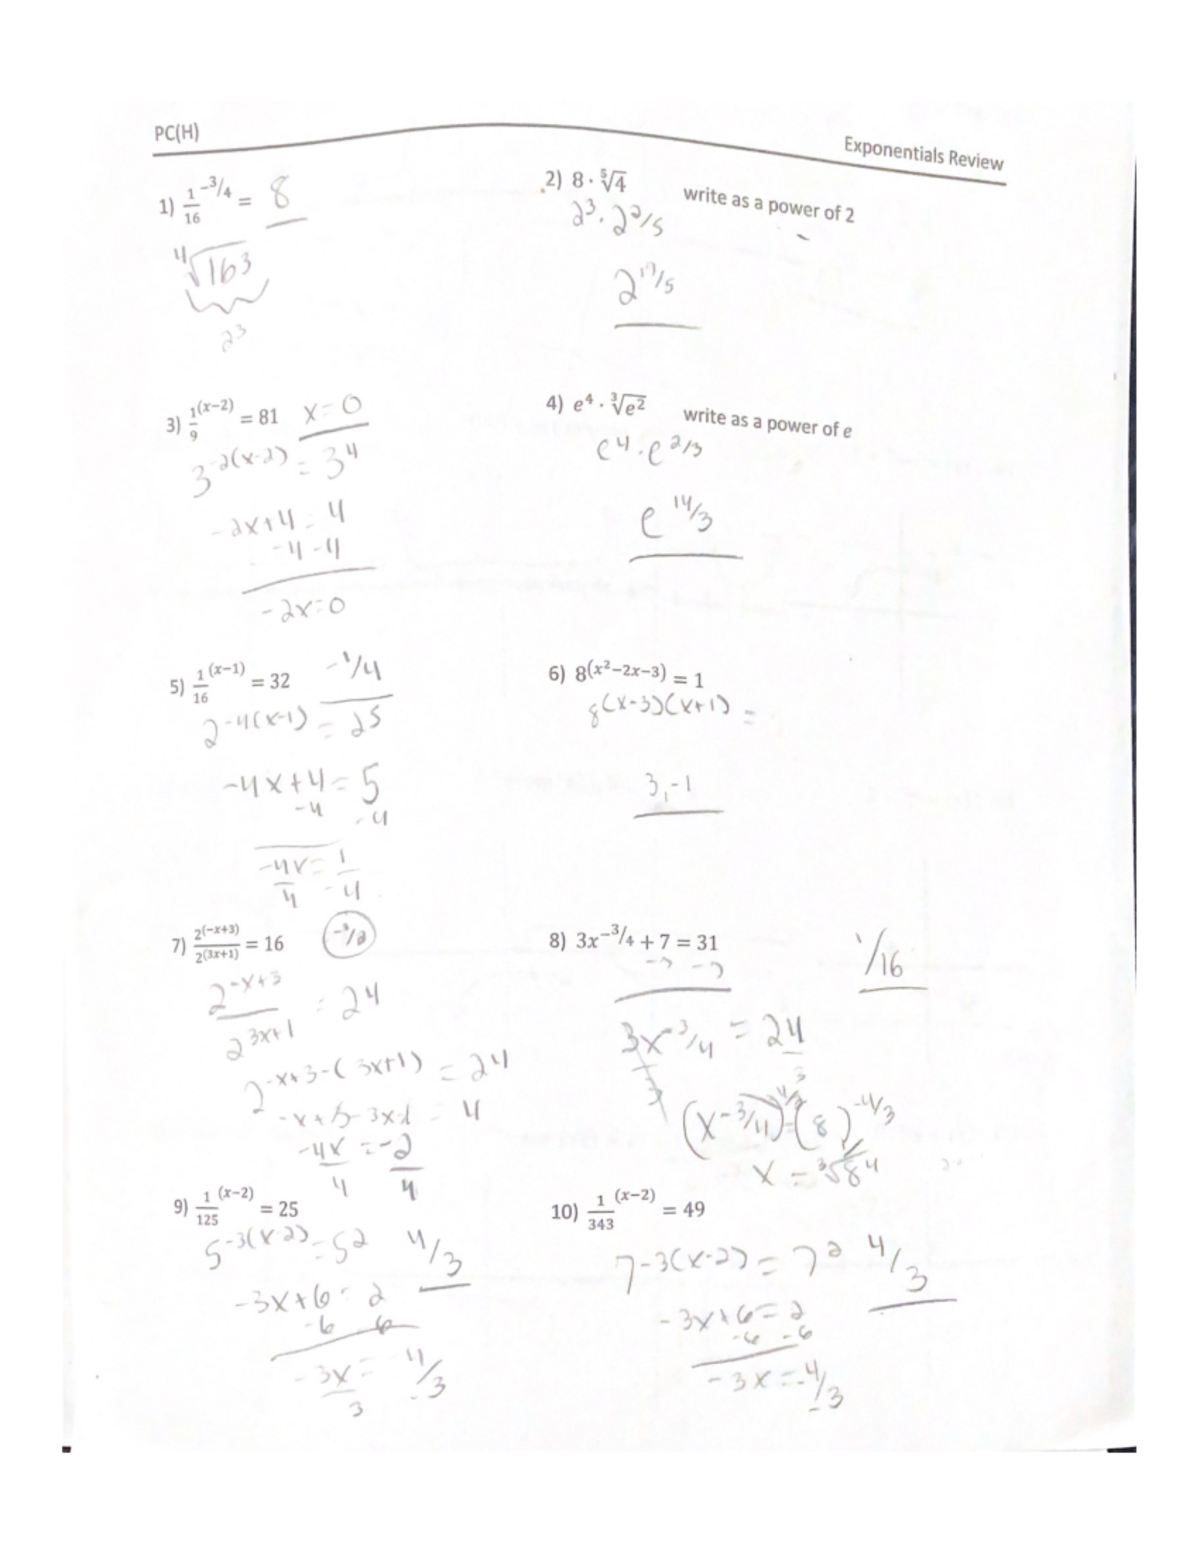 PC(H)
Exponentials Review
1) 1/16 ^-3/4 = 8
⁴√16³
2³
2) 8 · ⁵√4 write as a power of 2
2³ · 2^2/5
2^17/5
3) 1/9 ^(x−2) = 81 x=0
3^-2(x-2) = 3⁴
-2x+4 = 4
-4 -4
-2x=0
4) e⁴ · ³√e² write as a power of e
e⁴ · e^2/3
e^14/3
5) 1/16 ^(x−1) = 32 -1/4
2^-4(x-1) = 2⁵
-4x+4 = 5
-4 -4
-4x = 1
4 -4
6) 8^(x²−2x−3) = 1
8^(x-3)(x+1) =
3,-1
7) 2^(−x+3)/2^(3x+1) = 16 -3/2
2^-x+3 / 2^3x+1 = 2⁴
2^-x+3-(3x+1) = 2⁴
-x+3-3x-1 = 4
-4x = -2
4 4
8) 3x^−3/4 + 7 = 31 1/16
-7 -7
3x^-3/4 = 24
3 3
(x^-3/4)^-4/3 = (8)^-4/3
x = ³√8⁴
9) 1/125 ^(x−2) = 25
5^-3(x-2) = 5² 4/3
-3x+6 = 2
-6 -6
-3x = 4/-3
3
10) 1/343 ^(x−2) = 49
7^-3(x-2) = 7² 4/3
-3x+6 = 2
-6 -6
-3x = -4/-3